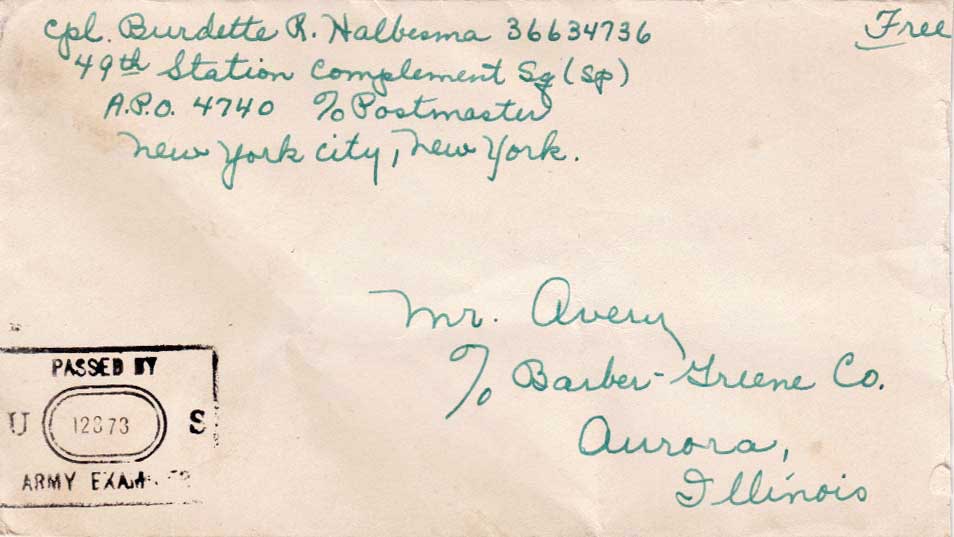 Cpl. Burdette R. Halbesma 36634736
Free
49th Station Complement Sq (Sp)
A.P.O. 4740 c/o Postmaster
New York City, New York.
Mr. Avery
c/o Barber-Greene Co.
Aurora,
Illinois
PASSED BY
U 12873 S
ARMY